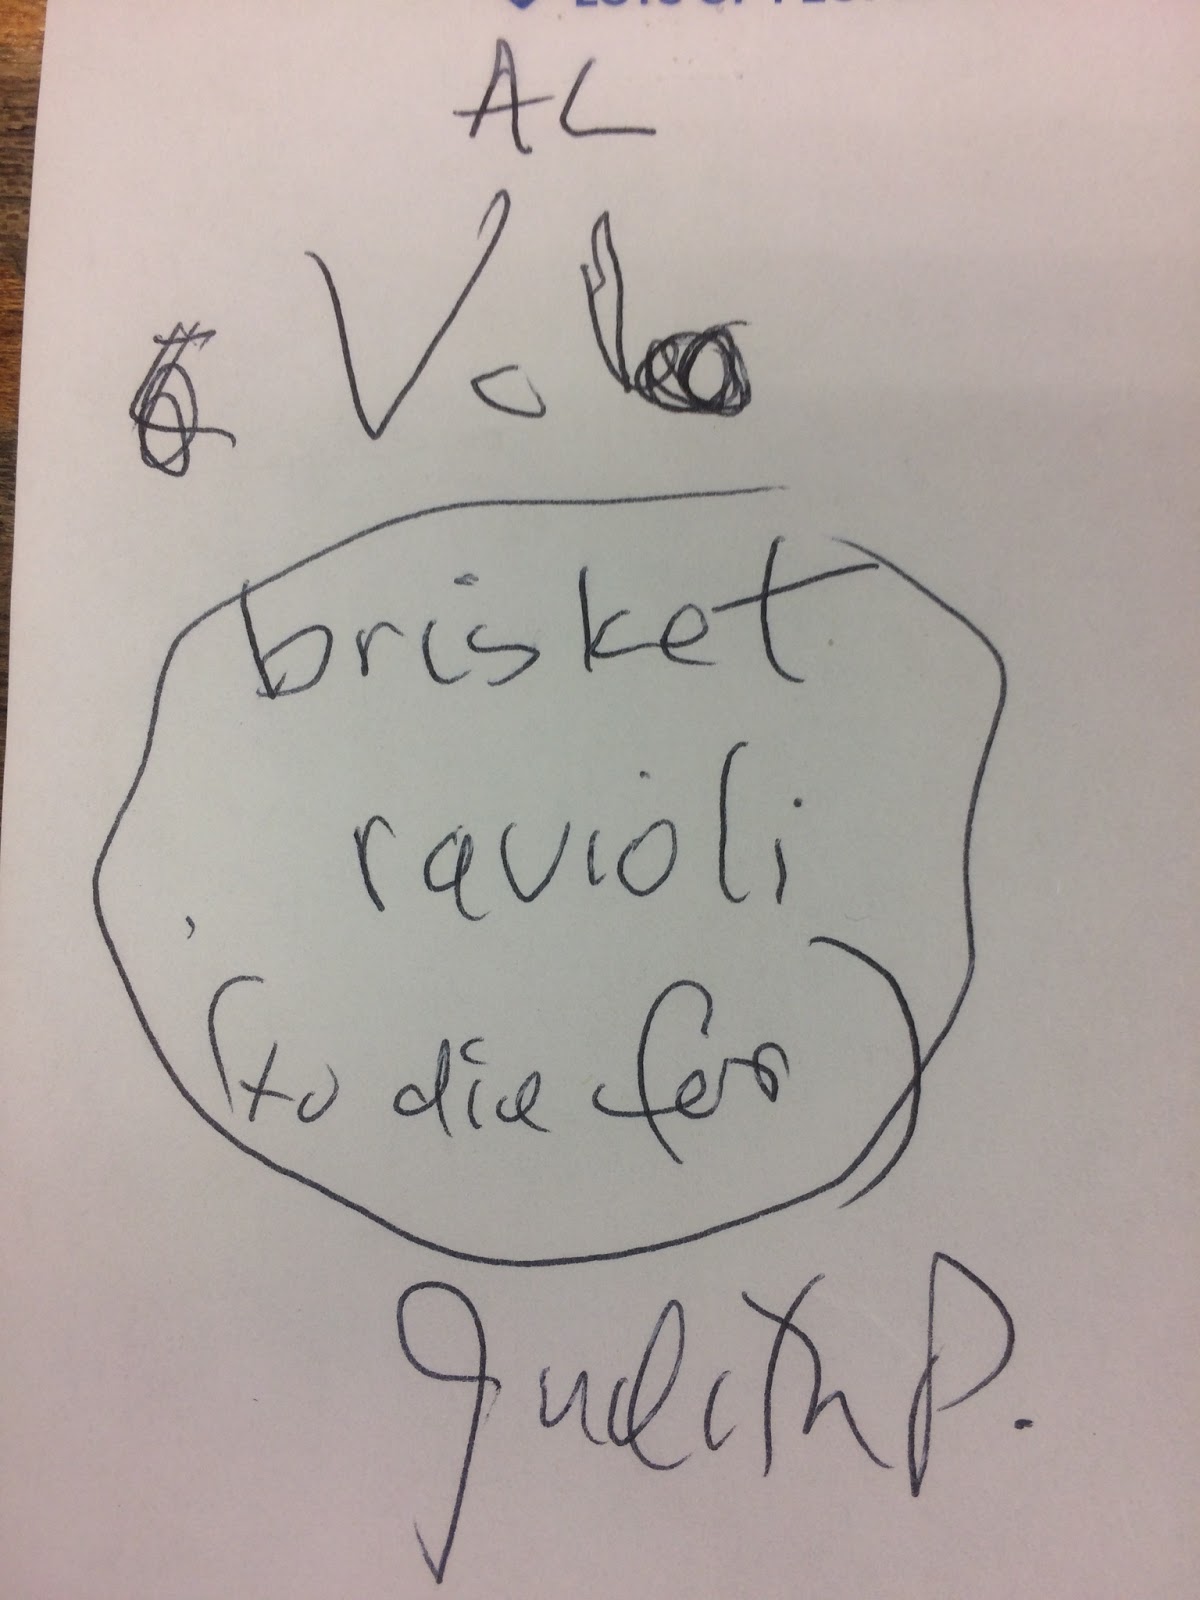 AL
Volo
brisket
ravioli
(to die for)
Judith P.